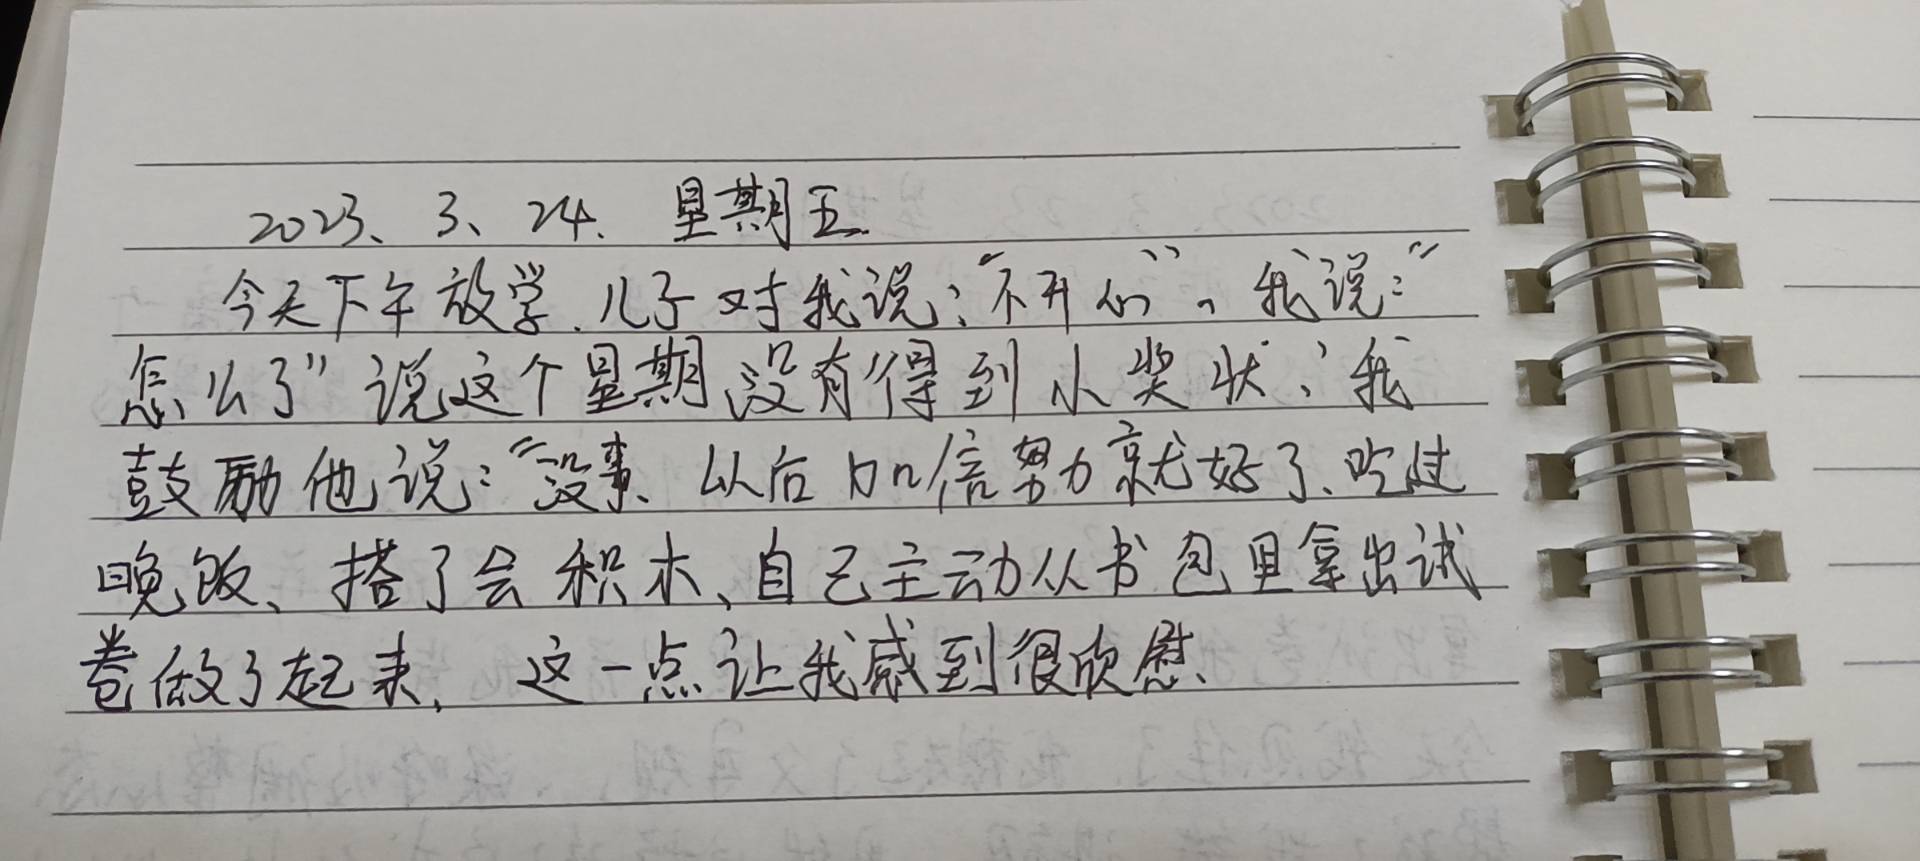 2023、3、24. 星期五.
今天下午放学.儿子对我说:“不开心”。我说:“
怎么了”说这个星期没有得到小奖状,我
鼓励他说:“没事、以后加倍努力就好了、吃过
晚饭、搭了会积木、自己主动从书包里拿出试
卷做了起来, 这一点让我感到很欣慰、